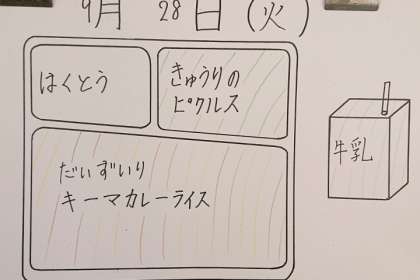 9月 28日(火)
はくとう
きゅうりの
ピクルス
だいずいり
キーマカレーライス
牛乳